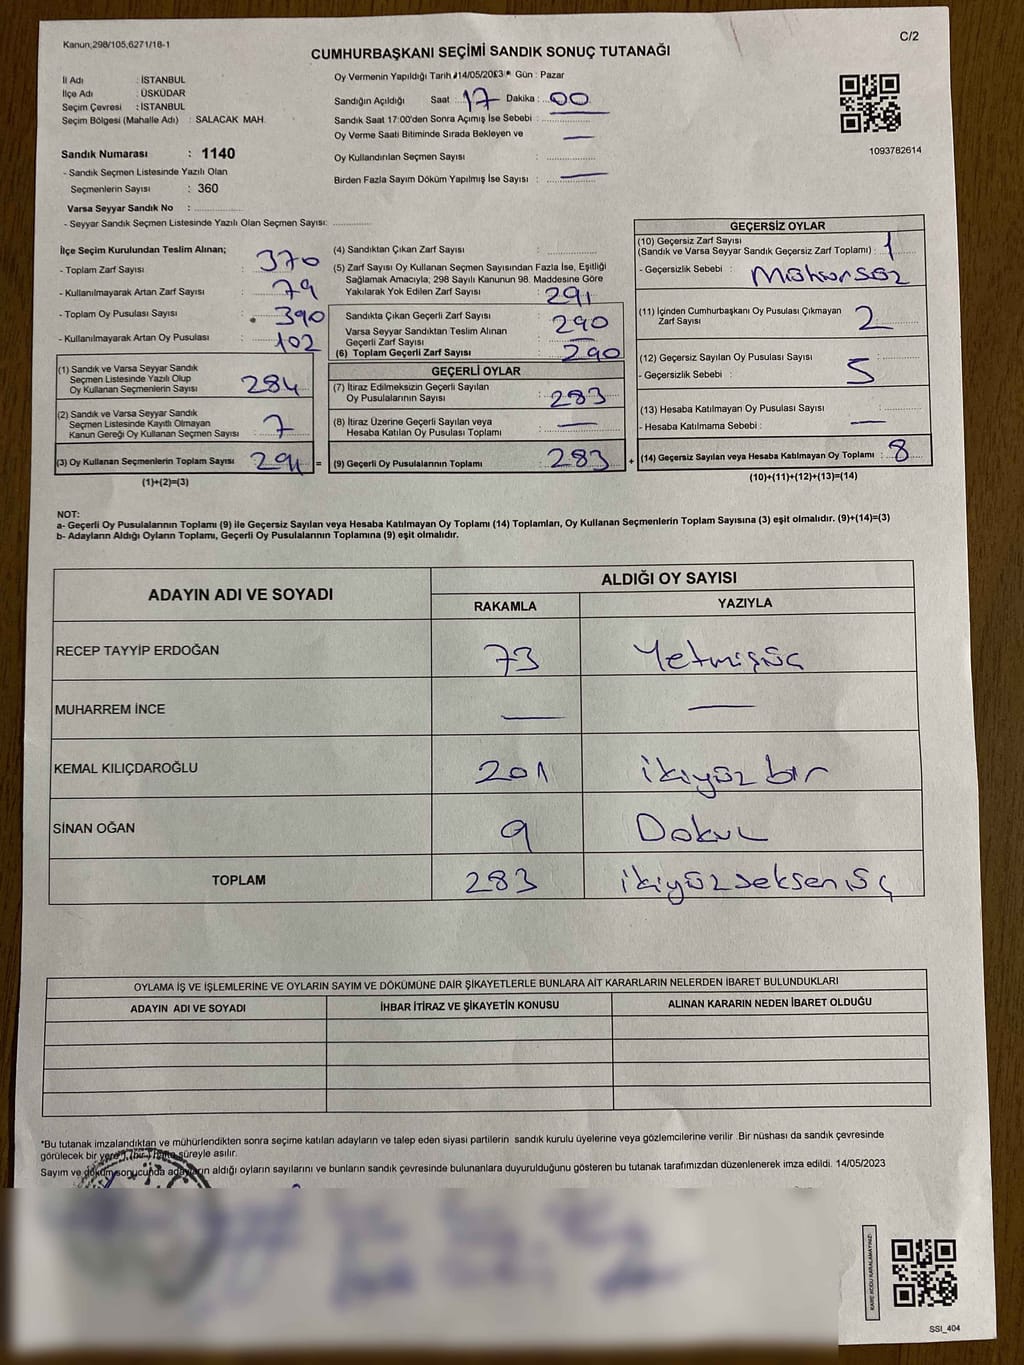 Kanun;298/105,6271/18-1
C/2
CUMHURBAŞKANI SEÇİMİ SANDIK SONUÇ TUTANAĞI
İl Adı : İSTANBUL
İlçe Adı : ÜSKÜDAR
Seçim Çevresi : İSTANBUL
Seçim Bölgesi (Mahalle Adı) : SALACAK MAH.
Sandık Numarası : 1140
- Sandık Seçmen Listesinde Yazılı Olan
Seçmenlerin Sayısı : 360
Varsa Seyyar Sandık No :
- Seyyar Sandık Seçmen Listesinde Yazılı Olan Seçmen Sayısı:
Oy Vermenin Yapıldığı Tarih 14/05/2023 Gün : Pazar
Sandığın Açıldığı Saat : 17 Dakika : 00
Sandık Saat 17:00'den Sonra Açımış İse Sebebi : —
Oy Verme Saati Bitiminde Sırada Bekleyen ve —
Oy Kullandırılan Seçmen Sayısı :
Birden Fazla Sayım Döküm Yapılmış İse Sayısı : —
1093782614
İlçe Seçim Kurulundan Teslim Alınan;
- Toplam Zarf Sayısı : 370
- Kullanılmayarak Artan Zarf Sayısı : 79
- Toplam Oy Pusulası Sayısı : 390
- Kullanılmayarak Artan Oy Pusulası : 102
(1) Sandık ve Varsa Seyyar Sandık
Seçmen Listesinde Yazılı Olup
Oy Kullanan Seçmenlerin Sayısı : 284
(2) Sandık ve Varsa Seyyar Sandık
Seçmen Listesinde Kayıtlı Olmayan
Kanun Gereği Oy Kullanan Seçmen Sayısı : 7
(3) Oy Kullanan Seçmenlerin Toplam Sayısı : 291 =
(1)+(2)=(3)
(4) Sandıktan Çıkan Zarf Sayısı :
(5) Zarf Sayısı Oy Kullanan Seçmen Sayısından Fazla İse, Eşitliği
Sağlamak Amacıyla; 298 Sayılı Kanunun 98. Maddesine Göre
Yakılarak Yok Edilen Zarf Sayısı : 291
Sandıkta Çıkan Geçerli Zarf Sayısı : 290
Varsa Seyyar Sandıktan Teslim Alınan
Geçerli Zarf Sayısı : —
(6) Toplam Geçerli Zarf Sayısı : 290
GEÇERLİ OYLAR
(7) İtiraz Edilmeksizin Geçerli Sayılan
Oy Pusulalarının Sayısı : 283
(8) İtiraz Üzerine Geçerli Sayılan veya
Hesaba Katılan Oy Pusulası Toplamı : —
(9) Geçerli Oy Pusulalarının Toplamı : 283 +
GEÇERSİZ OYLAR
(10) Geçersiz Zarf Sayısı
(Sandık ve Varsa Seyyar Sandık Geçersiz Zarf Toplamı) : 1
- Geçersizlik Sebebi : Mühürsüz
(11) İçinden Cumhurbaşkanı Oy Pusulası Çıkmayan
Zarf Sayısı : 2
(12) Geçersiz Sayılan Oy Pusulası Sayısı :
- Geçersizlik Sebebi : 5
(13) Hesaba Katılmayan Oy Pusulası Sayısı :
- Hesaba Katılmama Sebebi : —
(14) Geçersiz Sayılan veya Hesaba Katılmayan Oy Toplamı : 8
(10)+(11)+(12)+(13)=(14)
NOT:
a- Geçerli Oy Pusulalarının Toplamı (9) ile Geçersiz Sayılan veya Hesaba Katılmayan Oy Toplamı (14) Toplamları, Oy Kullanan Seçmenlerin Toplam Sayısına (3) eşit olmalıdır. (9)+(14)=(3)
b- Adayların Aldığı Oyların Toplamı, Geçerli Oy Pusulalarının Toplamına (9) eşit olmalıdır.
ADAYIN ADI VE SOYADI
ALDIĞI OY SAYISI
RAKAMLA YAZIYLA
RECEP TAYYİP ERDOĞAN 73 Yetmişüç
MUHARREM İNCE — —
KEMAL KILIÇDAROĞLU 201 ikiyüz bir
SİNAN OĞAN 9 Dokuz
TOPLAM 283 ikiyüzseksenüç
OYLAMA İŞ VE İŞLEMLERİNE VE OYLARIN SAYIM VE DÖKÜMÜNE DAİR ŞİKAYETLERLE BUNLARA AİT KARARLARIN NELERDEN İBARET BULUNDUKLARI
ADAYIN ADI VE SOYADI İHBAR İTİRAZ VE ŞİKAYETİN KONUSU ALINAN KARARIN NEDEN İBARET OLDUĞU
*Bu tutanak imzalandıktan ve mühürlendikten sonra seçime katılan adayların ve talep eden siyasi partilerin sandık kurulu üyelerine veya gözlemcilerine verilir. Bir nüshası da sandık çevresinde
görülecek bir yere 1 (bir) hafta süreyle asılır.
Sayım ve döküm sonucunda adayların aldığı oyların sayılarını ve bunların sandık çevresinde bulunanlara duyurulduğunu gösteren bu tutanak tarafımızdan düzenlenerek imza edildi. 14/05/2023
KARE KODU KARALAMAYINIZ
SSI_404